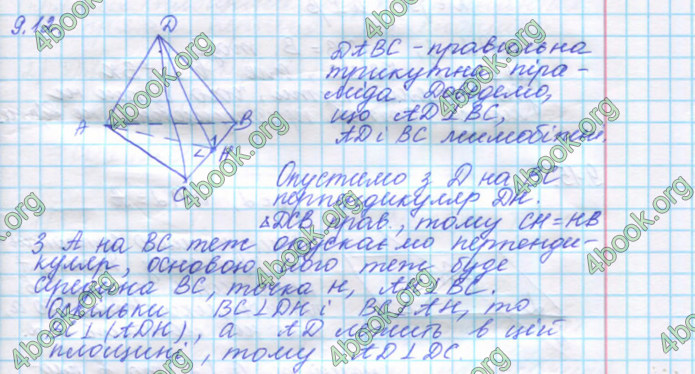 9.12
D
A
B
H
C
DABC - правильна
трикутна піра-
міда. Доведемо,
що AD⊥BC,
AD і BC мимобіжні.
Опустимо з D на BC
перпендикуляр DH.
△DCB - рав., тому CH=HB
З A на BC теж опускаємо перпенди-
куляр, основою його теж буде
середина BC, точка H, AH⊥BC.
Оскільки BC⊥DH і BC⊥AH, то
BC⊥(ADH), а AD лежить в цій
площині, тому AD⊥DC.
4book.org